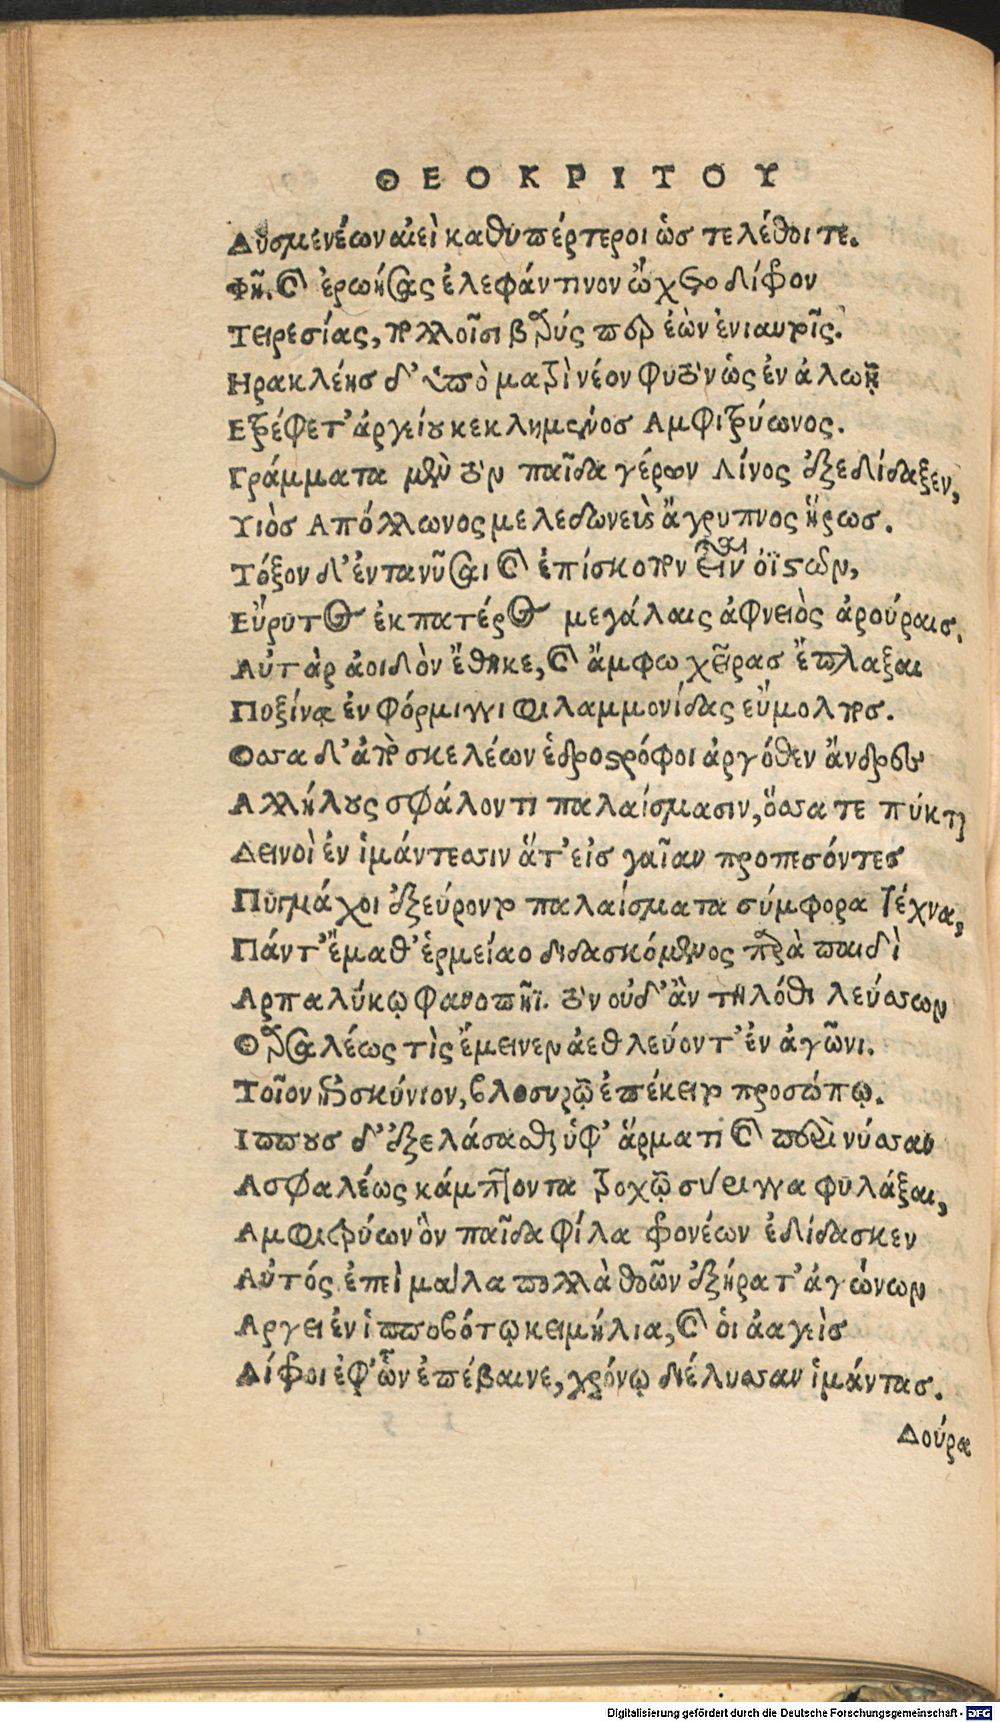 ΘΕΟΚΡΙΤΟΥ
Δυσμενέων αἰεὶ καθυπέρτεροι ὡς τελέθοιτε.
Φῆ. καὶ ἐρωήσας ἐλεφάντινον ὤχετο δίφρον
Τειρεσίας, πολλοῖσι βαρύς περ ἐὼν ἐνιαυτοῖς.
Ηρακλέης δ' ὑπὸ ματρὶ νέον φυτὸν ὡς ἐν ἀλωῇ
Ετρέφετ' ἀργείου κεκλημένος Αμφιτρύωνος.
Γράμματα μὲν τὸν παῖδα γέρων Λίνος ἐξεδίδαξεν,
Υιὸς Απόλλωνος μελεδωνεὺς ἄγρυπνος ἥρως.
Τόξον δ' ἐντανῦσαι καὶ ἐπίσκοπον εἶναι ὀϊστῶν,
Εὔρυτος ἐκ πατέρος μεγάλαις ἀφνειὸς ἀρούραις.
Αὐτὰρ ἀοιδὸν ἔθηκε, καὶ ἄμφω χεῖρας ἔπλαξαι
Πυξίνᾳ ἐν φόρμιγγι Φιλαμμονίδας εὔμολπος.
Οσσα δ' ἀπὸ σκελέων ἑδροστρόφοι ἀργόθεν ἄνδρες
Αλλήλους σφάλοντι παλαίσμασιν, ὅσσα τε πύκται
Δεινοὶ ἐν ἱμάντεσσιν ἅτ' εἰς γαῖαν προπεσόντες
Πυγμάχοι ἐξεύροντο παλαίσματα σύμφορα τέχνα,
Πάντ' ἔμαθ' ἑρμείαο διδασκόμενος παρὰ παιδὶ
Αρπαλύκῳ φανοπῆϊ. τὸν οὐδ' ἂν τηλόθι λεύσσων
Θαρσαλέως τὶς ἔμεινεν ἀεθλεύοντ' ἐν ἀγῶνι.
Τοῖον ἐπισκύνιον, βλοσυρῷ ἐπέκειτο προσώπῳ.
Ιππους δ' ἐξελάσασθαι ὑφ' ἅρματι καὶ περὶ νύσσαν
Ασφαλέως κάμπτοντα τροχῷ σύριγγα φυλάξαι,
Αμφιτρύων ὃν παῖδα φίλα φρονέων ἐδίδασκεν
Αὐτός ἐπεὶ μάλα πολλὰ θοῶν ἐξήρατ' ἀγώνων
Αργει ἐν ἱπποβότῳ κειμήλια, καὶ οἱ ἀαγεὶς
Δίφροι ἐφ' ὧν ἐπέβαινε, χρόνῳ διέλυσαν ἱμάντας.
Δούρα
Digitalisierung gefördert durch die Deutsche Forschungsgemeinschaft - DFG